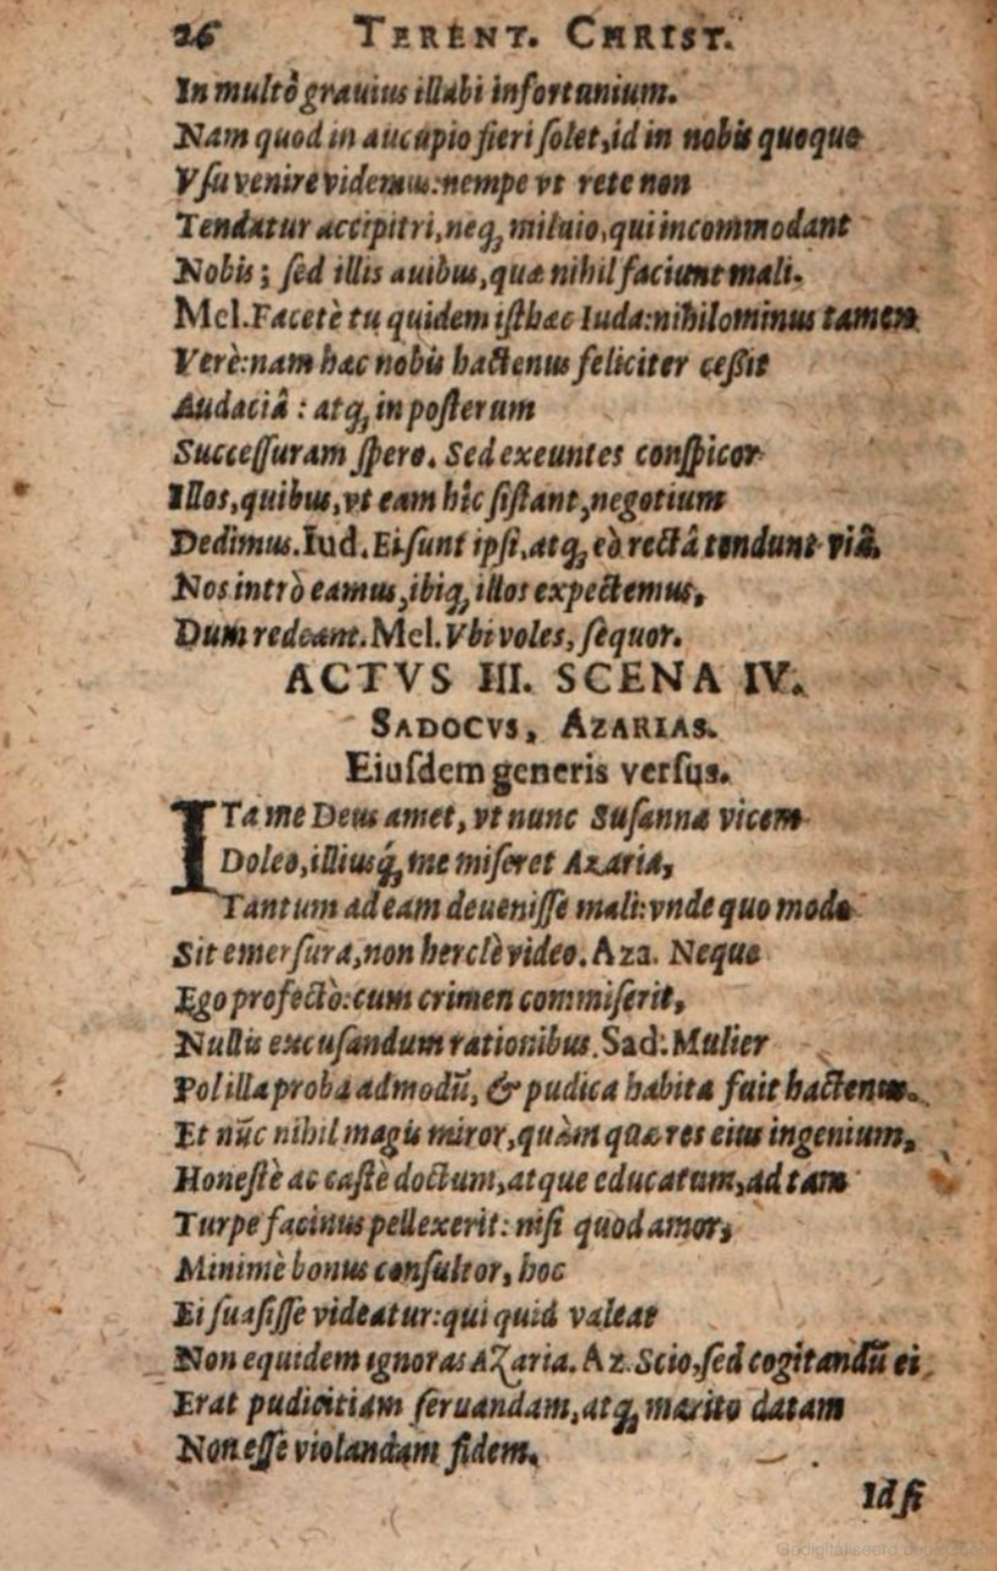 26 TERENT. CHRIST.
In multò grauius illabi infortunium.
Nam quod in aucupio fieri ſolet, id in nobis quoque
Vſu venire videmus: nempe vt rete non
Tendatur accipitri, neq; miluio, qui incommodant
Nobis; ſed illis auibus, quæ nihil faciunt mali.
Mel. Facetè tu quidem iſthæc Iuda: nihilominus tamen
Verè: nam hac nobis hactenus feliciter ceßit
Audaciâ: atq; in poſterum
Succeſſuram ſpero. Sed exeuntes conſpicor
Illos, quibus, vt eam hîc ſiſtant, negotium
Dedimus. Iud. Ei ſunt ipſi, atq; eò rectâ tendunt viâ.
Nos intrò eamus, ibiq; illos expectemus,
Dum redeant. Mel. Vbi voles, ſequor.
ACTVS III. SCENA IV.
SADOCVS, AZARIAS.
Eiuſdem generis verſus.
ITa me Deus amet, vt nunc Suſannæ vicem
Doleo, illiusq́; me miſeret Azaria,
Tantum ad eam deueniſſe mali: vnde quo modo
Sit emerſura, non herclè video. Aza. Neque
Ego profectò: cum crimen commiſerit,
Nullis excuſandum rationibus. Sad. Mulier
Pol illa proba admodũ, & pudica habita fuit hactenus.
Et nũc nihil magis miror, quàm quæ res eius ingenium,
Honeſtè ac caſtè doctum, atque educatum, ad tam
Turpe facinus pellexerit: niſi quod amor,
Minimè bonus conſultor, hoc
Ei ſuaſiſſe videatur: qui quid valeat
Non equidem ignoras AZaria. Az. Scio, ſed cogitandũ ei
Erat pudicitiam ſeruandam, atq; marito datam
Non eſſe violandam fidem.
Id ſi
Gedigitaliseerd door